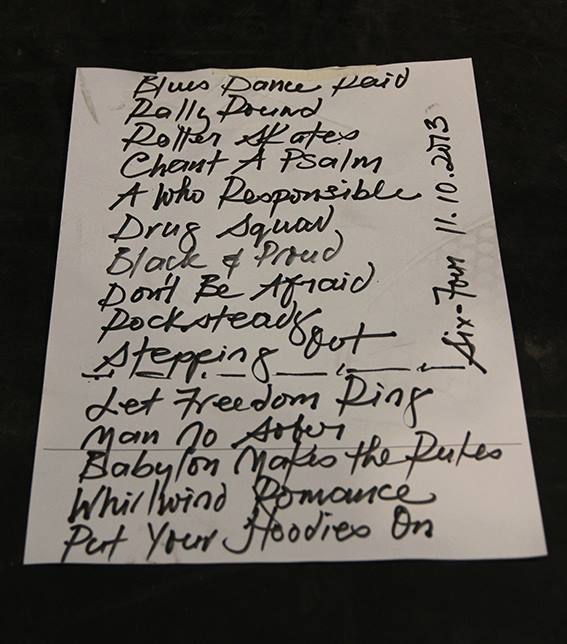 Blues Dance Raid
Rally Round
Roller Skates
Chant A Psalm
A Who Responsible
Drug Squad
Black & Proud
Don't Be Afraid
Rocksteady
Stepping Out
Let Freedom Ring
Man No Sober
Babylon Makes the Rules
Whirlwind Romance
Put Your Hoodies On
Six-Four 11.10.2013